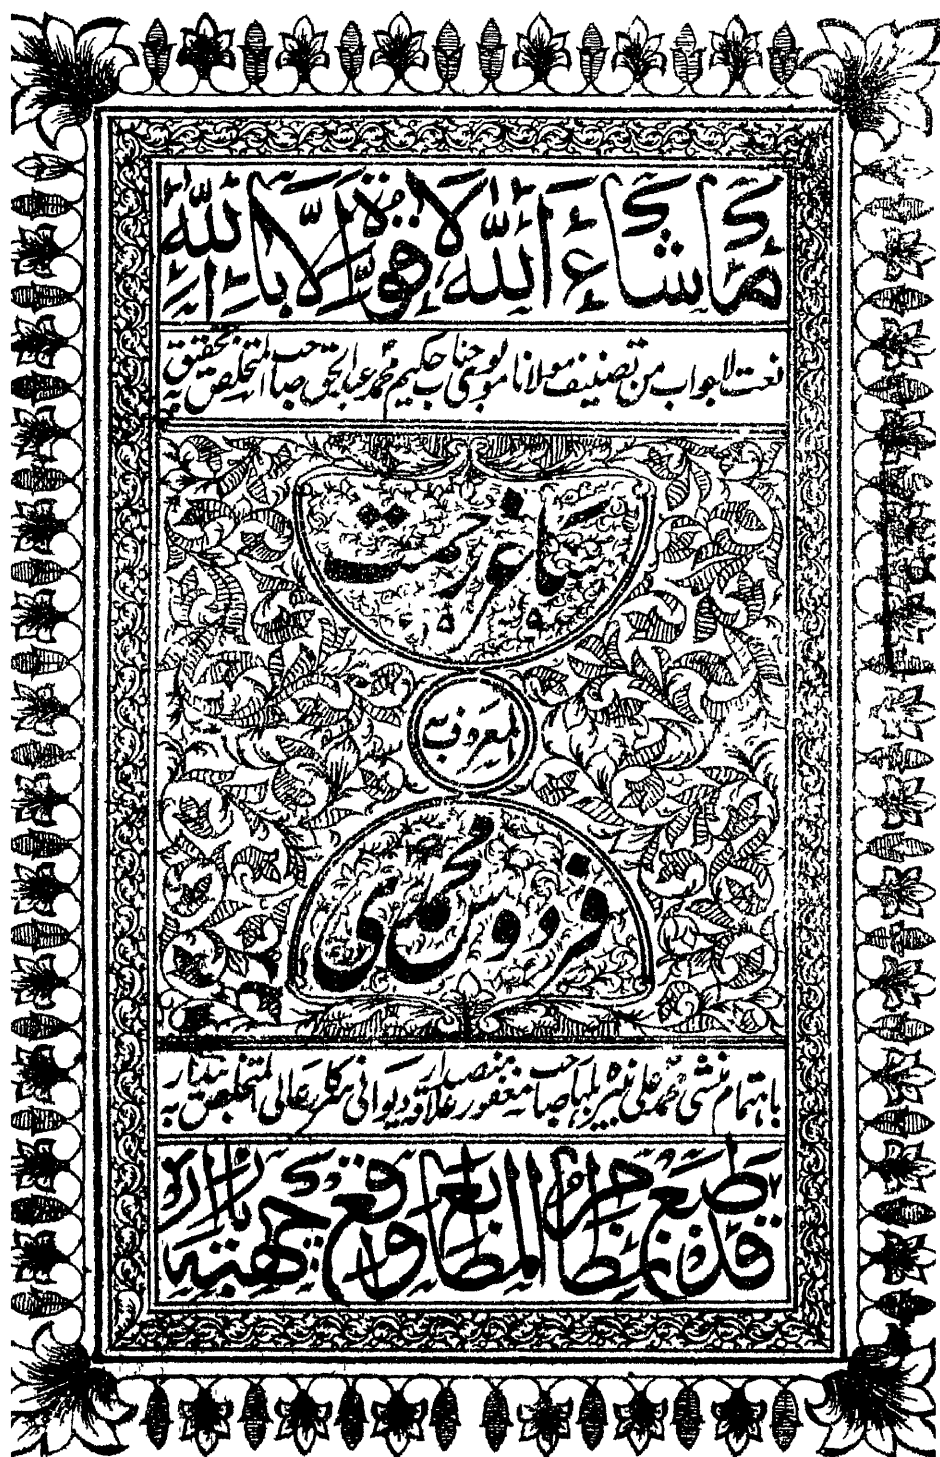 ما شاء الله لا قوة الا بالله
نعت لاجواب من تصنیف مولانا مولوی جناب حکیم محمد عبدالحق صاحب المتخلص بہ تحقیق
ساغر رحمت
المعروف بہ
فردوس محمدی
باہتمام منشی محمد علی صاحب منصبدار علاقہ دیوانی سرکار عالی المتخلص بہ
قد طبع فی المطابع واقع چھتہ بازار